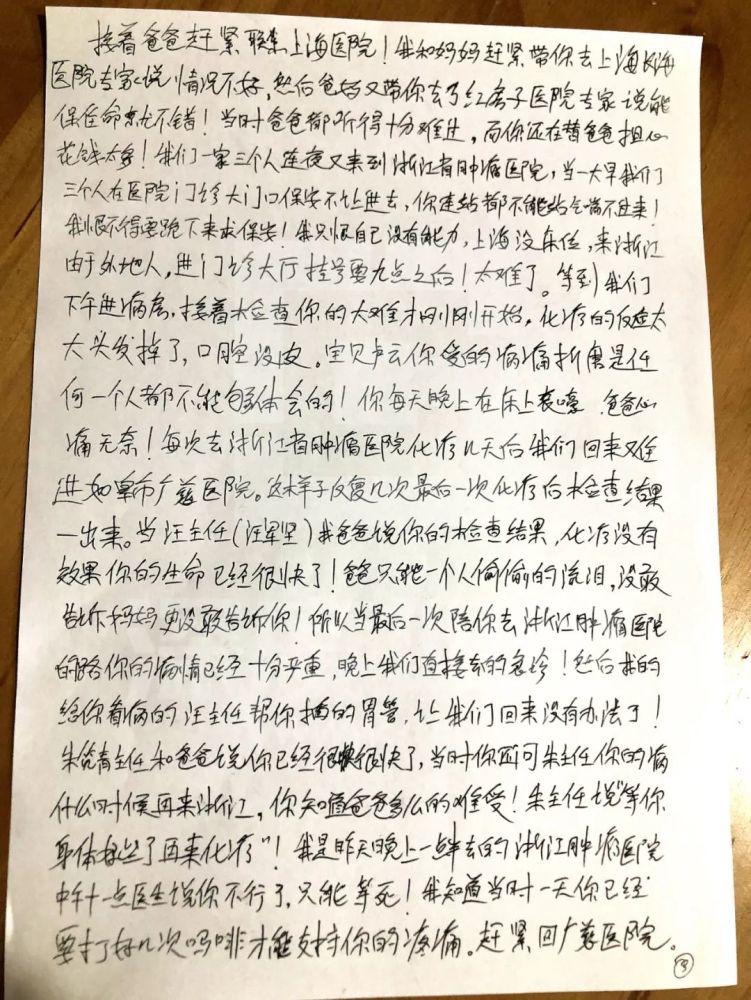 接着爸爸赶紧联系上海医院！我和妈妈赶紧带你去上海长海
医院专家说情况不好，然后爸妈又带你去了红房子医院专家说能
保住命就不错！当时爸爸都听得十分难过，而你还在替爸爸担心
花钱太多！我们一家三个人连夜又来到浙江省肿瘤医院，当一大早我们
三个人在医院门诊大门口保安不让进去，你连站都不能站气喘不过来！
我恨不得要跪下来求保安！我只恨自己没有能力，上海没床位，来浙江
由于外地人，进门诊大厅挂号要九点之后！太难了。等到我们
下午进病房，接着检查你的大难才刚刚开始，化疗的反应太
大头发掉了，口腔没皮。宝贝卢云你受的病痛折磨是任
何一个人都不能够体会的！你每天晚上在床上哀嚎 爸爸心
痛无奈！每次去浙江省肿瘤医院化疗几天后我们回来又难
进如皋市广慈医院。这样子反复几次最后一次化疗后检查结果
一出来。当汪主任（汪军坚）我爸爸说你的检查结果，化疗没有
效果你的生命已经很快了！爸爸只能一个人偷偷的流泪，没敢
告诉妈妈更没敢告诉你！所以当最后一次陪你去浙江肿瘤医院
的路你的病情已经十分严重，晚上我们直接去的急诊！然后求的
给你看病的汪主任帮你插的胃管，让我们回来没有办法了！
朱主任和爸爸说你已经很快很快了，当时你还问朱主任你的病
什么时候再来浙江，你知道爸爸多么的难受！朱主任说“等你
身体好些了再来化疗”！我是昨天晚上一点半去的浙江肿瘤医院
中午十一点医生说你不行了，只能等死！我知道当时一天你已经
要打了好几次吗啡才能支持你的疼痛。赶紧回广慈医院。
③